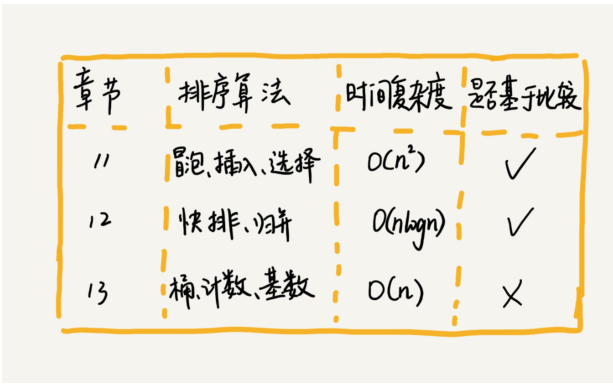 章节 排序算法 时间复杂度 是否基于比较
11 冒泡、插入、选择 O(n²) ✓
12 快排、归并 O(nlogn) ✓
13 桶、计数、基数 O(n) ×